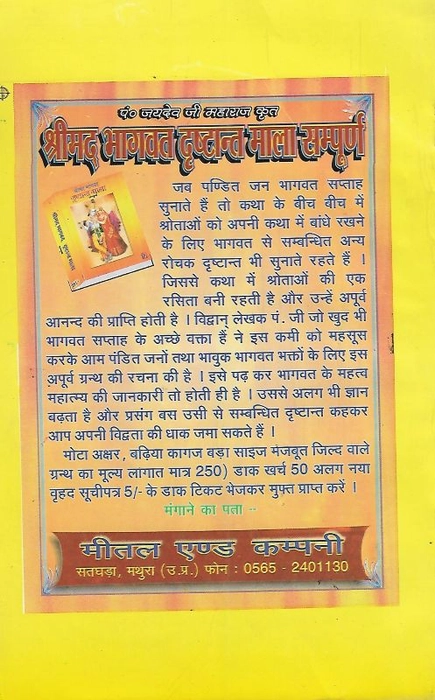 पं० जयदेव जी महाराज कृत
श्रीमद् भागवत दृष्टान्त माला सम्पूर्ण
जब पण्डित जन भागवत सप्ताह
सुनाते हैं तो कथा के बीच बीच में
श्रोताओं को अपनी कथा में बांधे रखने
के लिए भागवत से सम्बन्धित अन्य
रोचक दृष्टान्त भी सुनाते रहते हैं ।
जिससे कथा में श्रोताओं की एक
रसिता बनी रहती है और उन्हें अपूर्व
आनन्द की प्राप्ति होती है । विद्वान् लेखक पं. जी जो खुद भी
भागवत सप्ताह के अच्छे वक्ता हैं ने इस कमी को महसूस
करके आम पंडित जनों तथा भावुक भागवत भक्तों के लिए इस
अपूर्व ग्रन्थ की रचना की है । इसे पढ़ कर भागवत के महत्व
महात्म्य की जानकारी तो होती ही है । उससे अलग भी ज्ञान
बढ़ता है और प्रसंग वस उसी से सम्बन्धित दृष्टान्त कहकर
आप अपनी विद्वता की धाक जमा सकते हैं ।
मोटा अक्षर, बढ़िया कागज बड़ा साइज मंजबूत जिल्द वाले
ग्रन्थ का मूल्य लागात मात्र 250) डाक खर्च 50 अलग नया
वृहद सूचीपत्र 5/- के डाक टिकट भेजकर मुफ्त प्राप्त करें ।
मंगाने का पता --
मीतल एण्ड कम्पनी
सतघड़ा, मथुरा (उ.प्र.) फोन : 0565 - 2401130